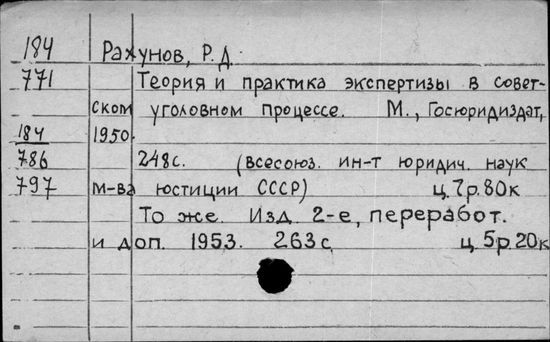 184 Рахунов, Р. Д.
771 Теория и практика экспертизы в совет-
ском уголовном процессе. М., Госюридиздат,
184 1950.
786 248с. (всесоюз. ин-т юридич. наук
797 м-ва юстиции СССР) ц. 7р. 80к
То же. Изд. 2-е, переработ.
и доп. 1953. 263с. ц. 5р. 20к